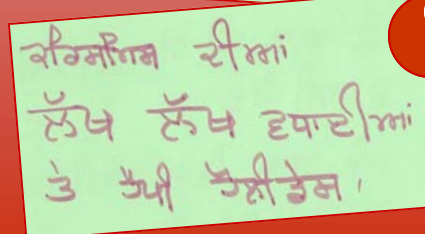 ਕਰਿਸਮਿਸ ਦੀਆਂ
ਲੱਖ ਲੱਖ ਵਧਾਈਆਂ
ਤੇ ਹੈਪੀ ਹੌਲੀਡੇਸ ।